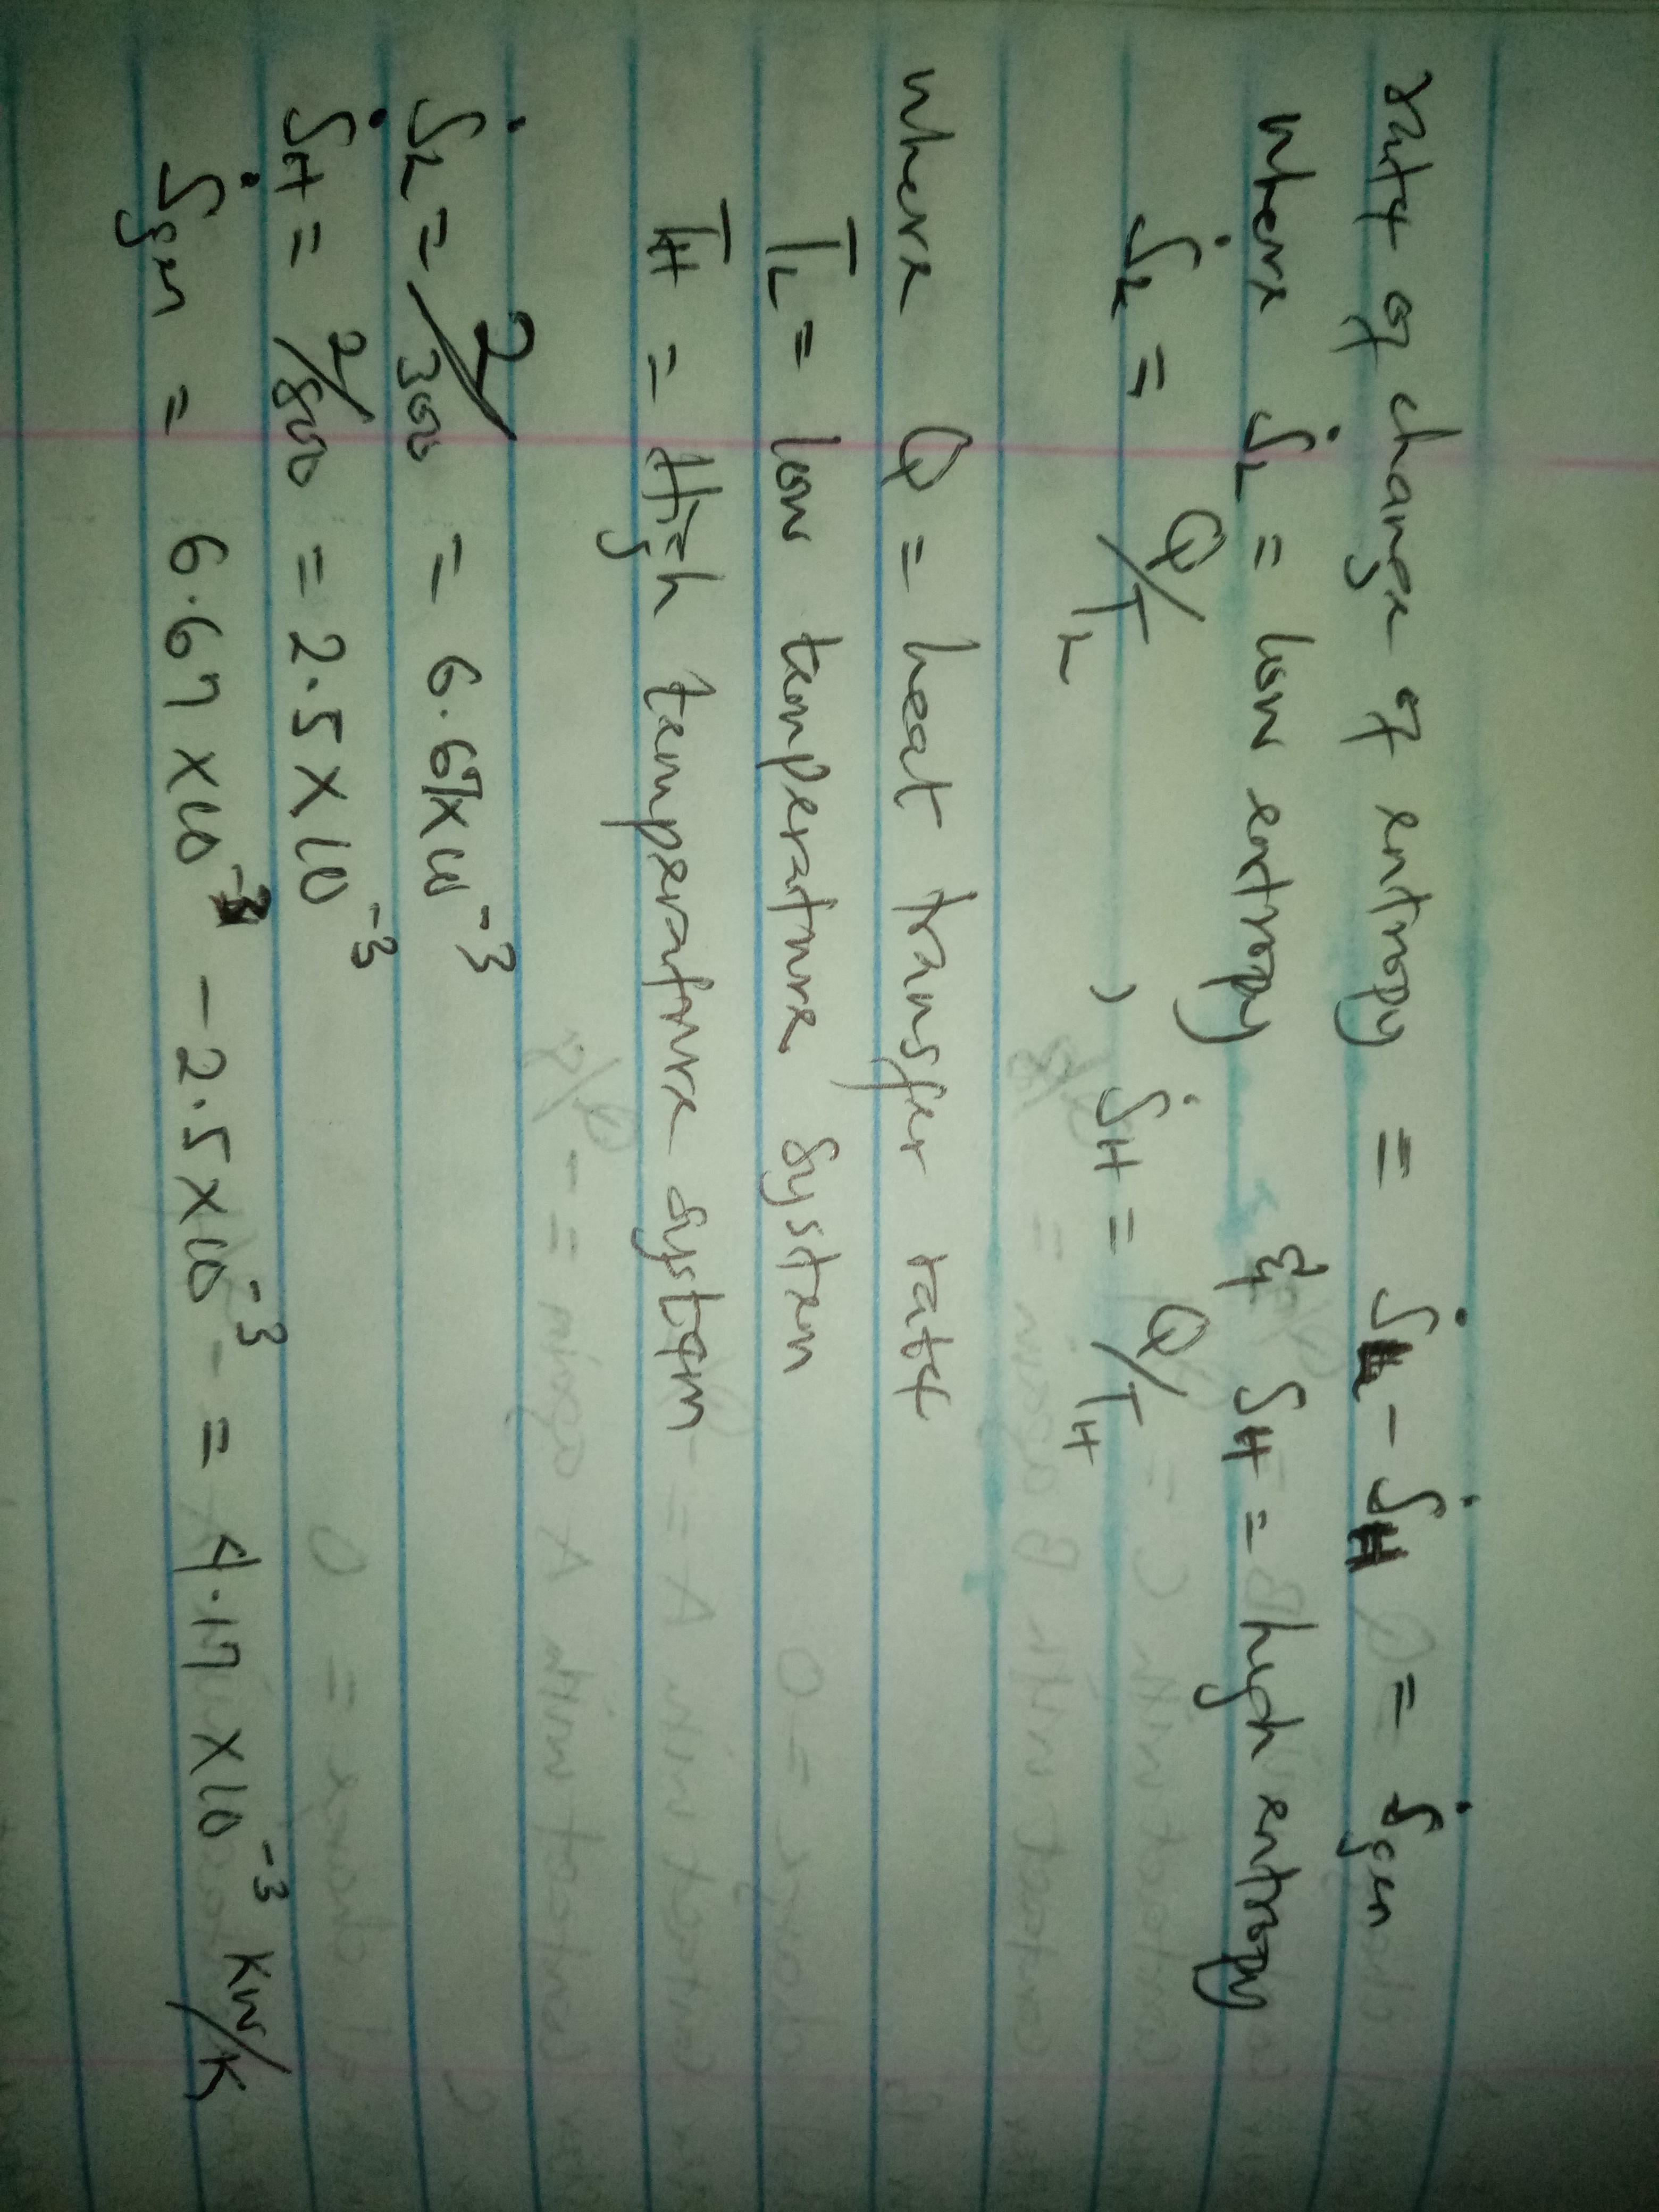 rate of change of entropy = ṠL - ṠH = Ṡgen
where ṠL = low entropy & SH = high entropy
ṠL = Q/TL , ṠH = Q/TH
where Q = heat transfer rate
TL = low temperature system
TH = High temperature system
ṠL = 2/300 = 6.67×10⁻³
ṠH = 2/800 = 2.5×10⁻³
Ṡgen = 6.67×10⁻³ - 2.5×10⁻³ = 4.17×10⁻³ kW/K